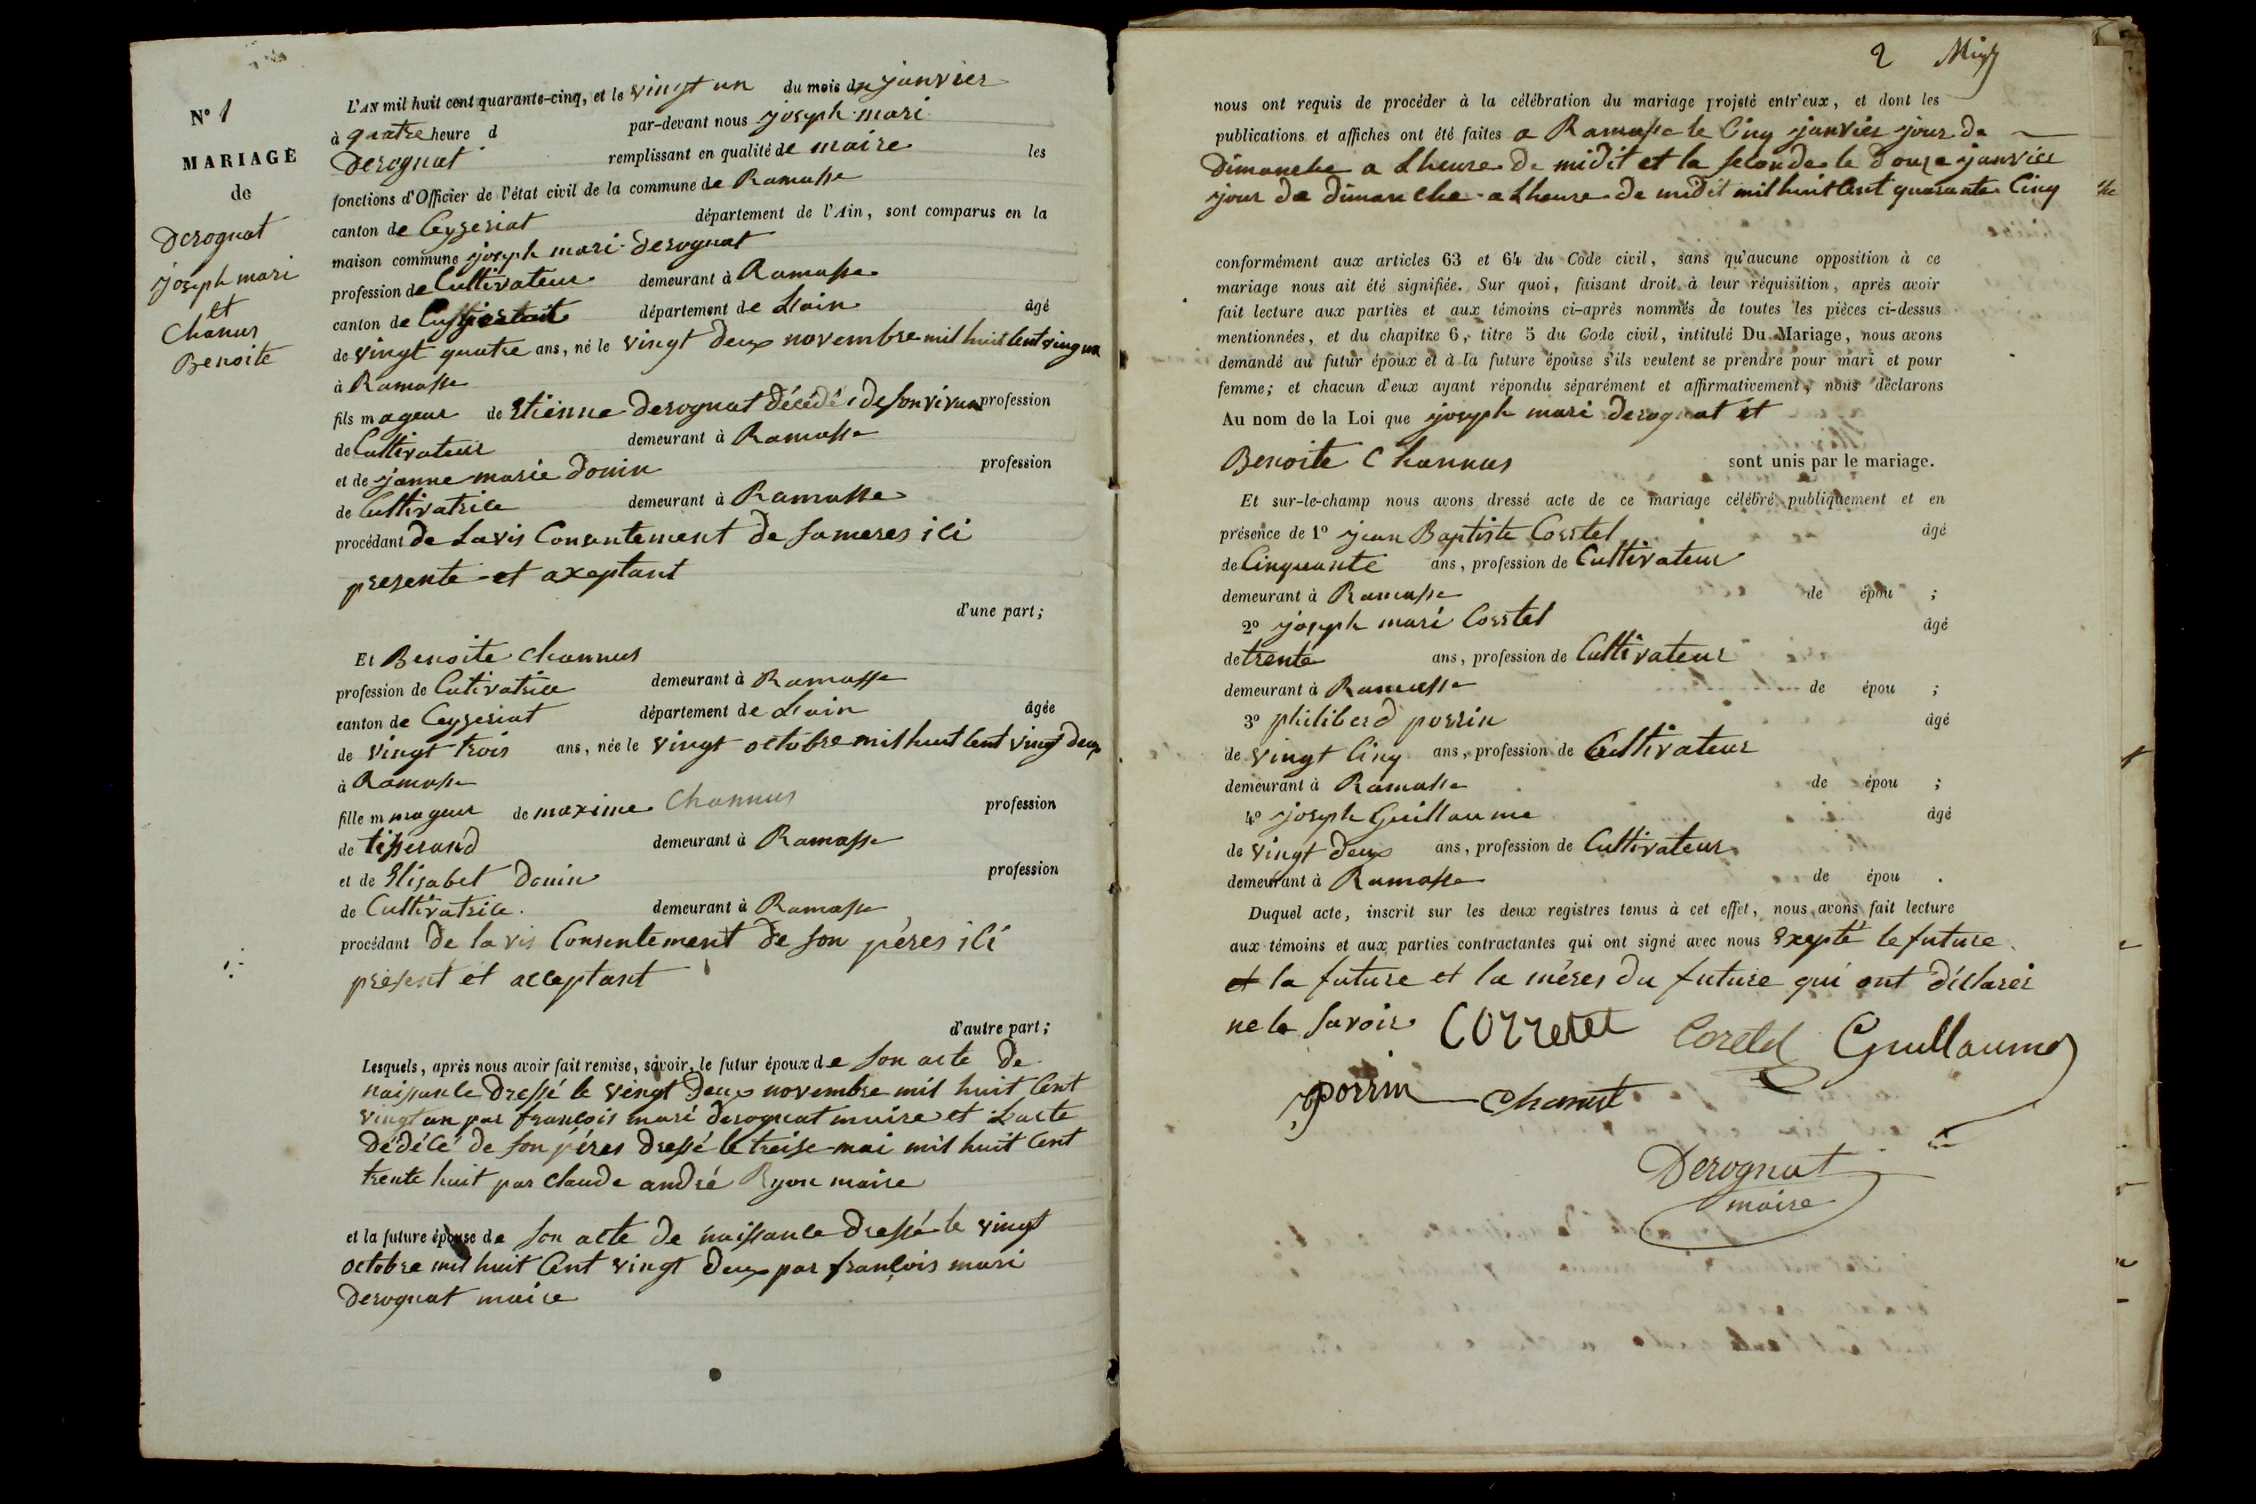 N° 1
MARIAGE
de
Derognat
joseph mari
et
Chanus
Benoite
L'AN mil huit cent quarante-cinq, et le vingt un du mois de janvier
à quatre heure d par-devant nous joseph mari
Derognat remplissant en qualité de maire les
fonctions d'Officier de l'état civil de la commune de Ramasse
canton de Ceyzeriat département de l'Ain, sont comparus en la
maison commune joseph mari derognat
profession de Cultivateur demeurant à Ramasse
canton de département de Lain âgé
de vingt quatre ans, né le vingt deux novembre mil huit Cent vingt un
à Ramasse
fils mageur de Etienne derognat décédé de son vivan profession
de Cultivateur demeurant à Ramasse
et de janne marie Donin profession
de Cultivatrice demeurant à Ramasse
procédant de Lavis Consentement de sameres ici
presente et axeptant
d'une part;
Et Benoite Channus
profession de Cutivatrice demeurant à Ramasse
canton de Ceyzeriat département de Lain âgée
de vingt trois ans, née le vingt octobre mil huit Cent vingt deux
à Ramasse
fille m mageur de maxime Channus profession
de tisserand demeurant à Ramasse
et de Elisabet Donin profession
de Cultivatrice. demeurant à Ramasse
procédant de lavis Consentement de son péres ici
présent et acceptant
d'autre part;
Lesquels, après nous avoir fait remise, savoir, le futur époux de son acte de
naissance dressé le vingt deux novembre mil huit Cent
vingt un par françois mari derognat maire et Lacte
dédécé de son péres dressé le treise mai mil huit Cent
trente huit par Claude andré Ryon maire
et la future épouse de son acte de naissance dressé le vingt
octobre mil huit Cent vingt deux par françois mari
derognat maire
2
nous ont requis de procéder à la célébration du mariage projeté entr'eux, et dont les
publications et affiches ont été faites a Ramasse le Cinq janvier jour de
dimanche a Lheure de midit et la seconde le douze janvier
jour de dimanche a Lheure de midit mil huit Cent quarante Cinq
conformément aux articles 63 et 64 du Code civil, sans qu'aucune opposition à ce
mariage nous ait été signifiée. Sur quoi, faisant droit à leur réquisition, après avoir
fait lecture aux parties et aux témoins ci-après nommés de toutes les pièces ci-dessus
mentionnées, et du chapitre 6, titre 5 du Code civil, intitulé Du Mariage, nous avons
demandé au futur époux et à la future épouse s'ils veulent se prendre pour mari et pour
femme; et chacun d'eux ayant répondu séparément et affirmativement, nous déclarons
Au nom de la Loi que joseph mari derognat et
Benoite Channus sont unis par le mariage.
Et sur-le-champ nous avons dressé acte de ce mariage célébré publiquement et en
présence de 1° jean Baptiste Corrtet âgé
de Cinquante ans, profession de Cultivateur
demeurant à Ramasse de épou ;
2° joseph mari Corrtet âgé
de trente ans, profession de Cultivateur
demeurant à Ramasse de épou ;
3° philiberd porrin âgé
de vingt Cinq ans, profession de Cultivateur
demeurant à Ramasse de épou ;
4° joseph Guillaume âgé
de vingt deux ans, profession de Cultivateur
demeurant à Ramasse de épou .
Duquel acte, inscrit sur les deux registres tenus à cet effet, nous avons fait lecture
aux témoins et aux parties contractantes qui ont signé avec nous Exepté le future
et la future et la méres du future qui ont déclarer
ne le savoir Corretet Coretet Guillaume
porrin Chanut
Derognat
maire